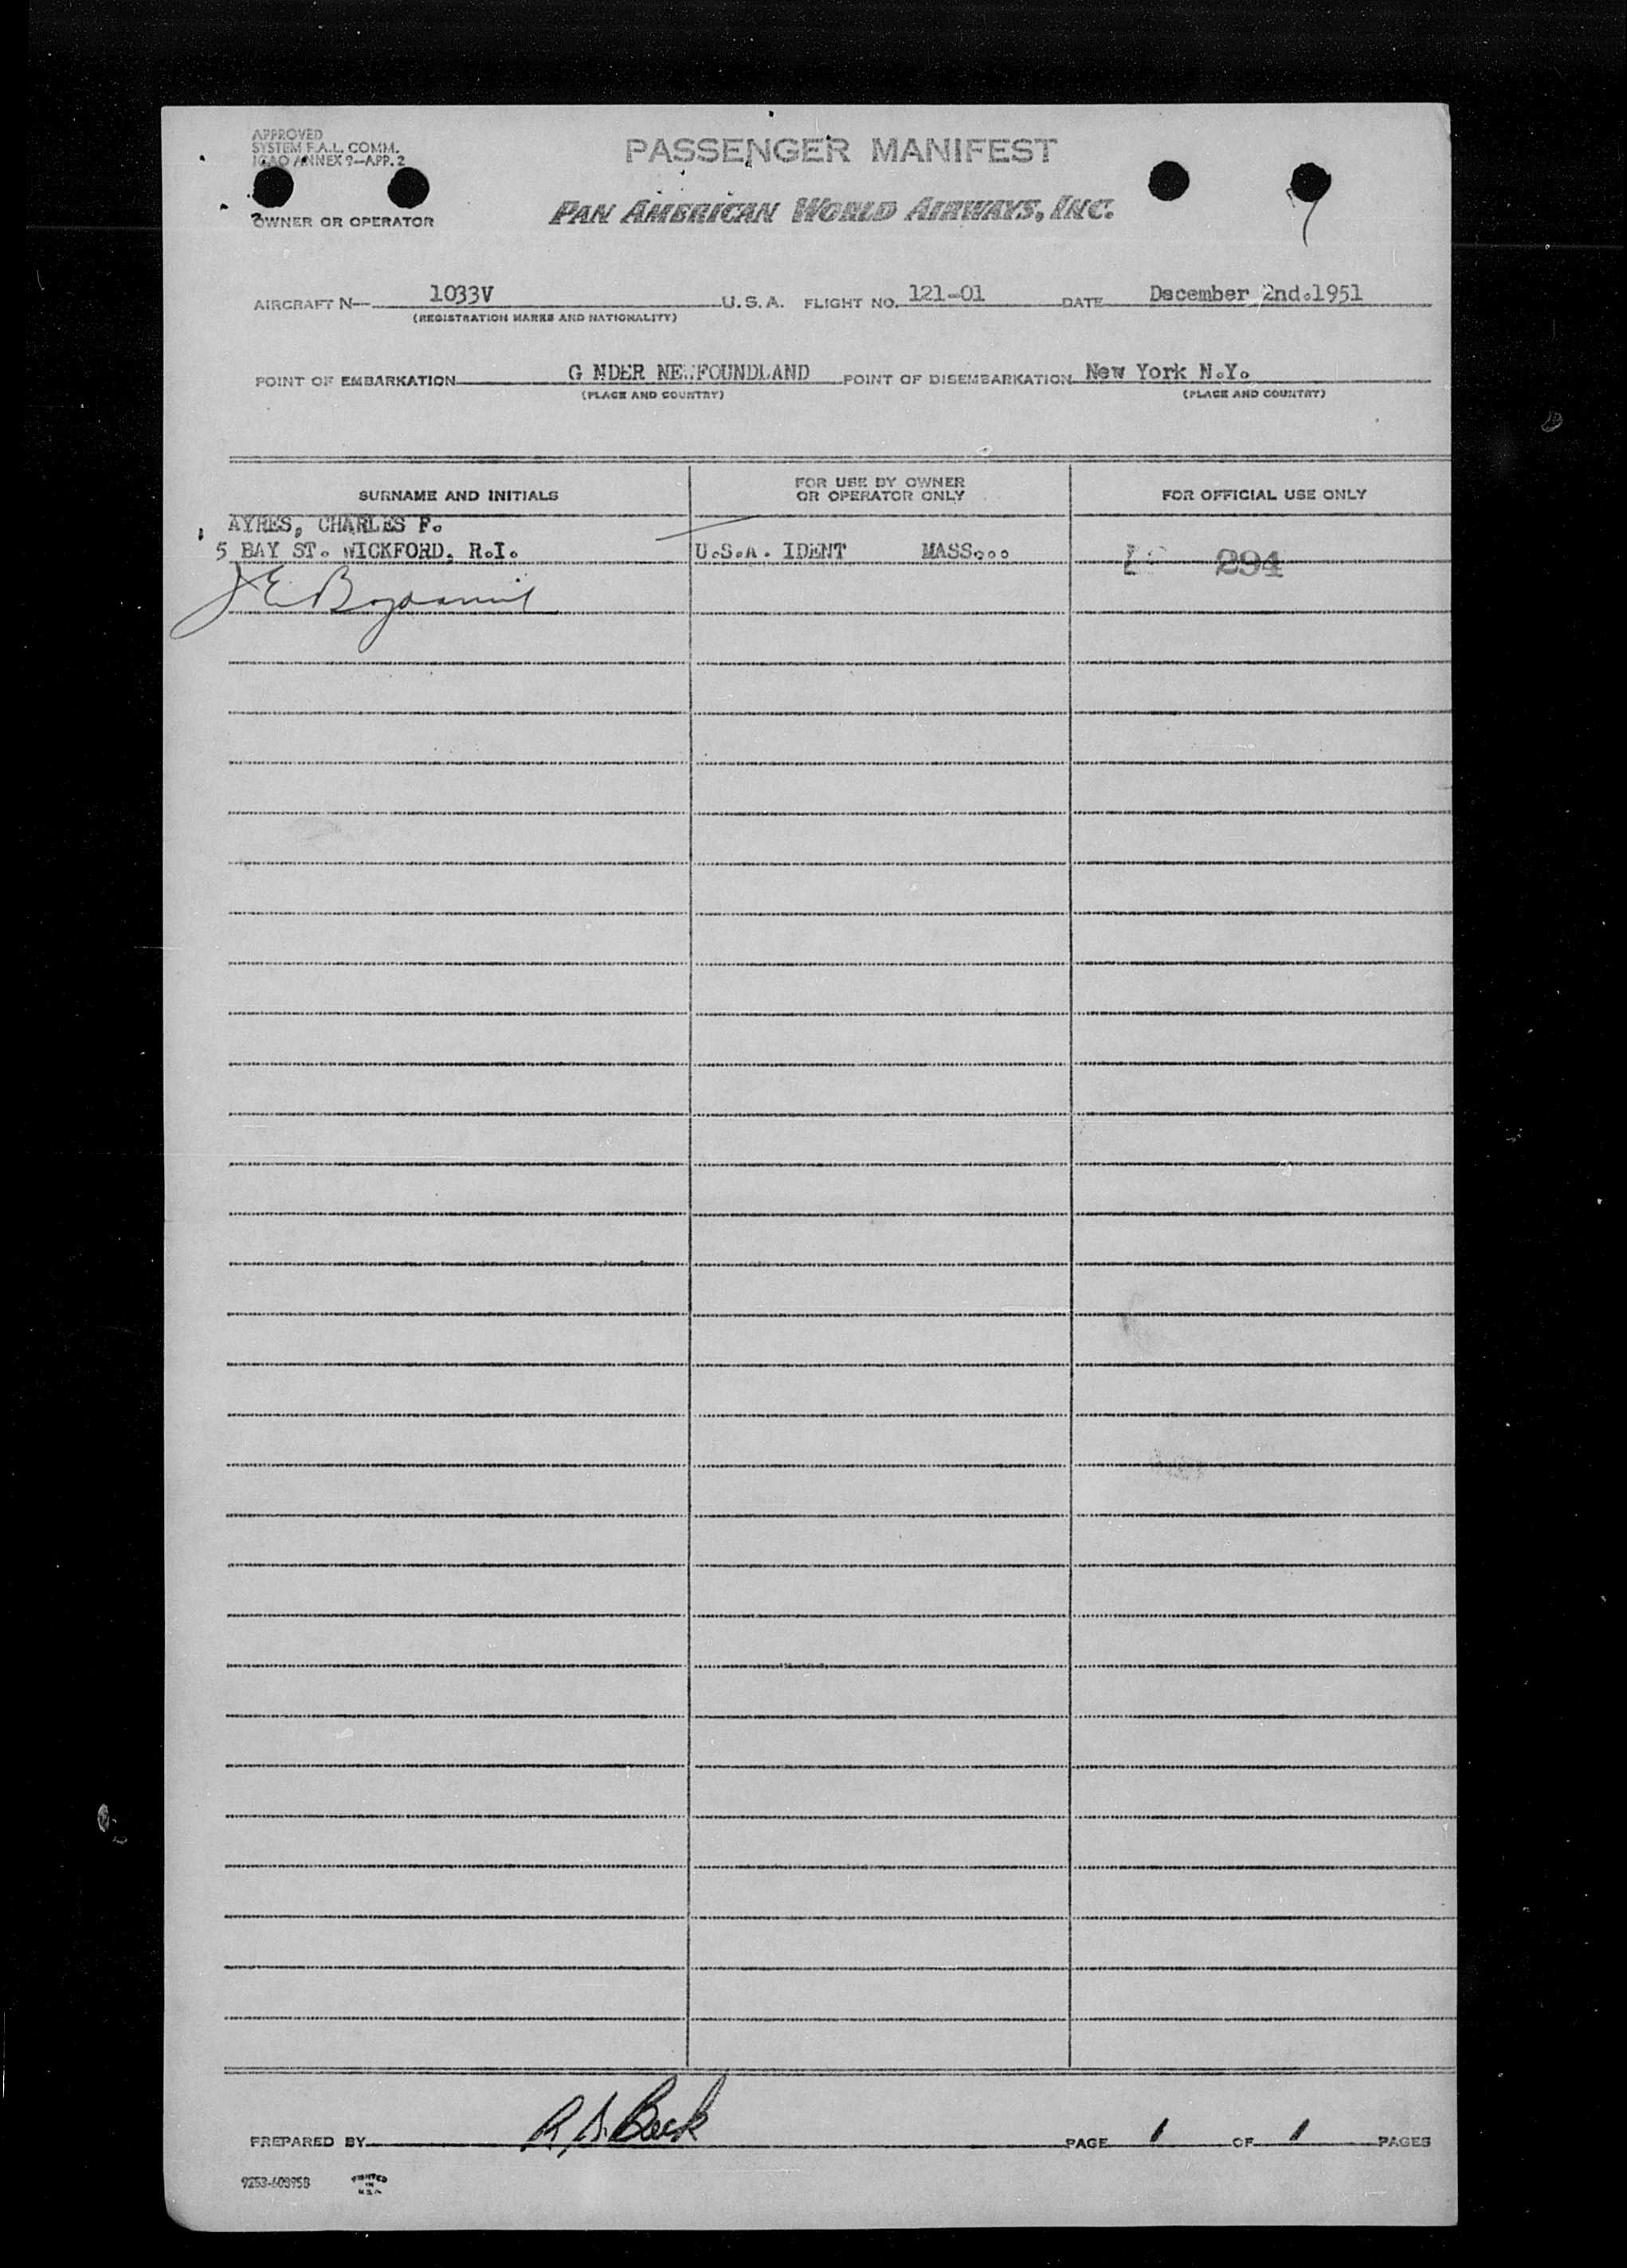 APPROVED
SYSTEM F.A.L. COMM.
ICAO ANNEX 9—APP. 2
PASSENGER MANIFEST
PAN AMERICAN WORLD AIRWAYS, INC.
OWNER OR OPERATOR
AIRCRAFT N— 1033V U.S.A. FLIGHT NO. 121-01 DATE December 2nd.1951
(REGISTRATION MARKS AND NATIONALITY)
POINT OF EMBARKATION G NDER NEWFOUNDLAND POINT OF DISEMBARKATION New York N.Y.
(PLACE AND COUNTRY) (PLACE AND COUNTRY)
SURNAME AND INITIALS FOR USE BY OWNER OR OPERATOR ONLY FOR OFFICIAL USE ONLY
AYRES, CHARLES F.
5 BAY ST. WICKFORD, R.I. U.S.A. IDENT MASS... 294
PREPARED BY R. Beck PAGE 1 OF 1 PAGES
PRINTED
IN
U.S.A.